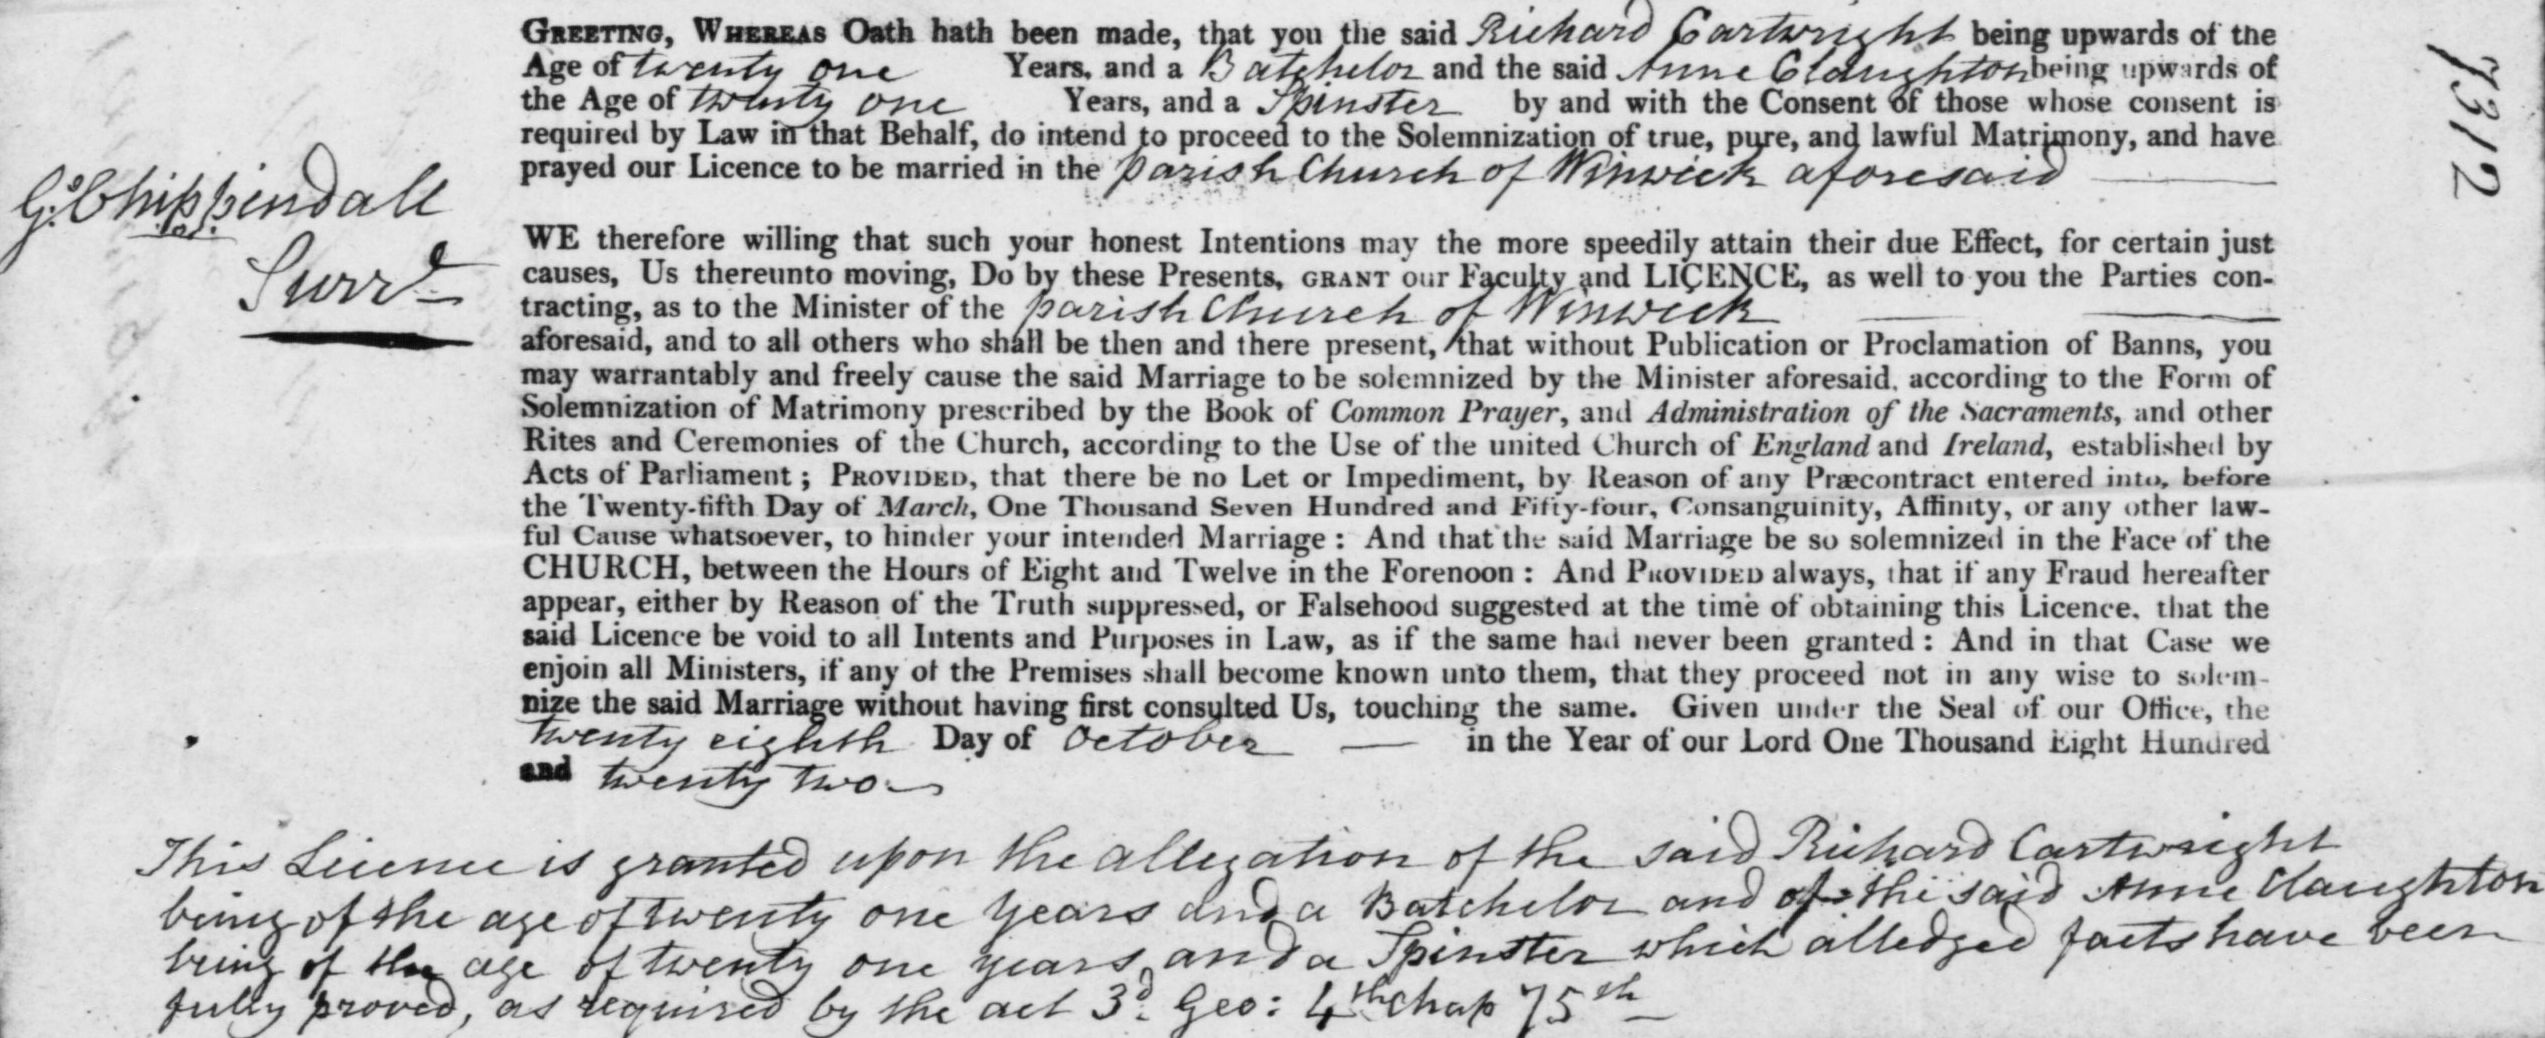 GREETING, WHEREAS Oath hath been made, that you the said Richard Cartwright being upwards of the
Age of twenty one Years, and a Batchelor and the said Anne Claughton being upwards of
the Age of twenty one Years, and a Spinster by and with the Consent of those whose consent is
required by Law in that Behalf, do intend to proceed to the Solemnization of true, pure, and lawful Matrimony, and have
prayed our Licence to be married in the parish Church of Winwick aforesaid
G. Chippindall
Surr
7312
WE therefore willing that such your honest Intentions may the more speedily attain their due Effect, for certain just
causes, Us thereunto moving, Do by these Presents, GRANT our Faculty and LICENCE, as well to you the Parties con-
tracting, as to the Minister of the parish Church of Winwick
aforesaid, and to all others who shall be then and there present, that without Publication or Proclamation of Banns, you
may warrantably and freely cause the said Marriage to be solemnized by the Minister aforesaid, according to the Form of
Solemnization of Matrimony prescribed by the Book of Common Prayer, and Administration of the Sacraments, and other
Rites and Ceremonies of the Church, according to the Use of the united Church of England and Ireland, established by
Acts of Parliament; PROVIDED, that there be no Let or Impediment, by Reason of any Præcontract entered into, before
the Twenty-fifth Day of March, One Thousand Seven Hundred and Fifty-four, Consanguinity, Affinity, or any other law-
ful Cause whatsoever, to hinder your intended Marriage: And that the said Marriage be so solemnized in the Face of the
CHURCH, between the Hours of Eight and Twelve in the Forenoon: And PROVIDED always, that if any Fraud hereafter
appear, either by Reason of the Truth suppressed, or Falsehood suggested at the time of obtaining this Licence, that the
said Licence be void to all Intents and Purposes in Law, as if the same had never been granted: And in that Case we
enjoin all Ministers, if any of the Premises shall become known unto them, that they proceed not in any wise to solem-
nize the said Marriage without having first consulted Us, touching the same. Given under the Seal of our Office, the
twenty eighth Day of October — in the Year of our Lord One Thousand Eight Hundred
and twenty two
This Licence is granted upon the allegation of the said Richard Cartwright
being of the age of twenty one Years and a Batchelor and of the said Anne Claughton
being of the age of twenty one years, and a Spinster which alledged facts have been
fully proved, as required by the act 3d. Geo: 4th Chap 75th